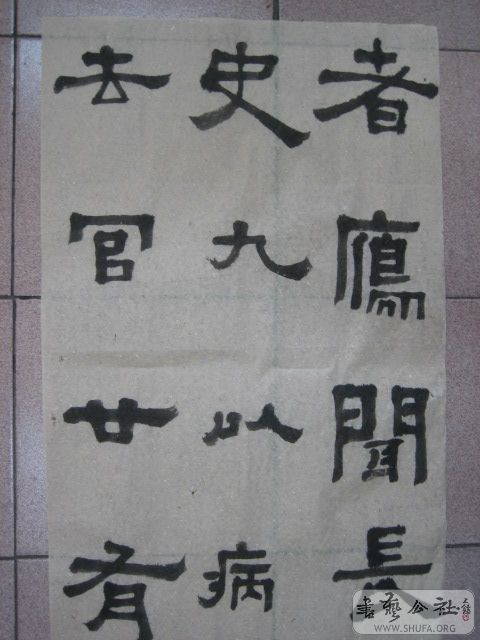 者鴈聞長
史九以病
去官廿有
書藝公社
WWW.SHUFA.ORG